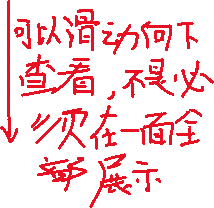 可以滑动向下
查看，不是必
须在一面全
部展示